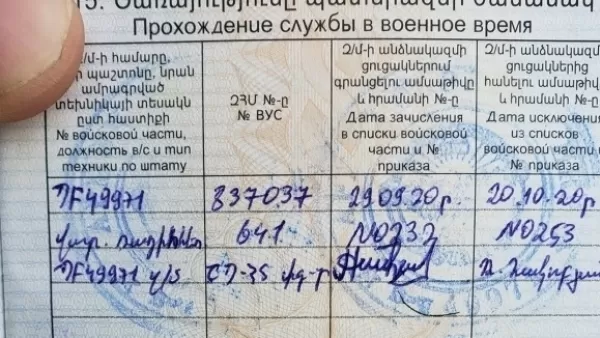 15. Ծառայությունը պատերազմի ժամանակ
Прохождение службы в военное время
Զ/մ-ի համարը,
պաշտոնը, նրան
ամրագրված
տեխնիկայի տեսակն
ըստ հաստիքի
№ войсковой части,
должность в/с и тип
техники по штату
ԶՀՄ №-ը
№ ВУС
Զ/մ-ի անձնակազմի
ցուցակներում
գրանցելու ամսաթիվը
և հրամանի №-ը
Дата зачисления
в списки войсковой
части и №
приказа
Զ/մ-ի անձնակազմի
ցուցակներից
հանելու ամսաթիվը
և հրամանի №-ը
Дата исключения
из списков
войсковой части и
№ приказа
49971 837037 29.09.20թ. 20.10.20թ.
641 N0233 N0253
49971